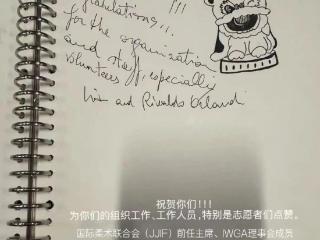 gratulations!!!
for the organization
and staff, especially
volunteers
Lis and Rinaldo Orlandi
祝贺你们!!!
为你们的组织工作、工作人员,特别是志愿者们点赞。
国际柔术联合会（JJIF）前任主席、IWGA理事会成员